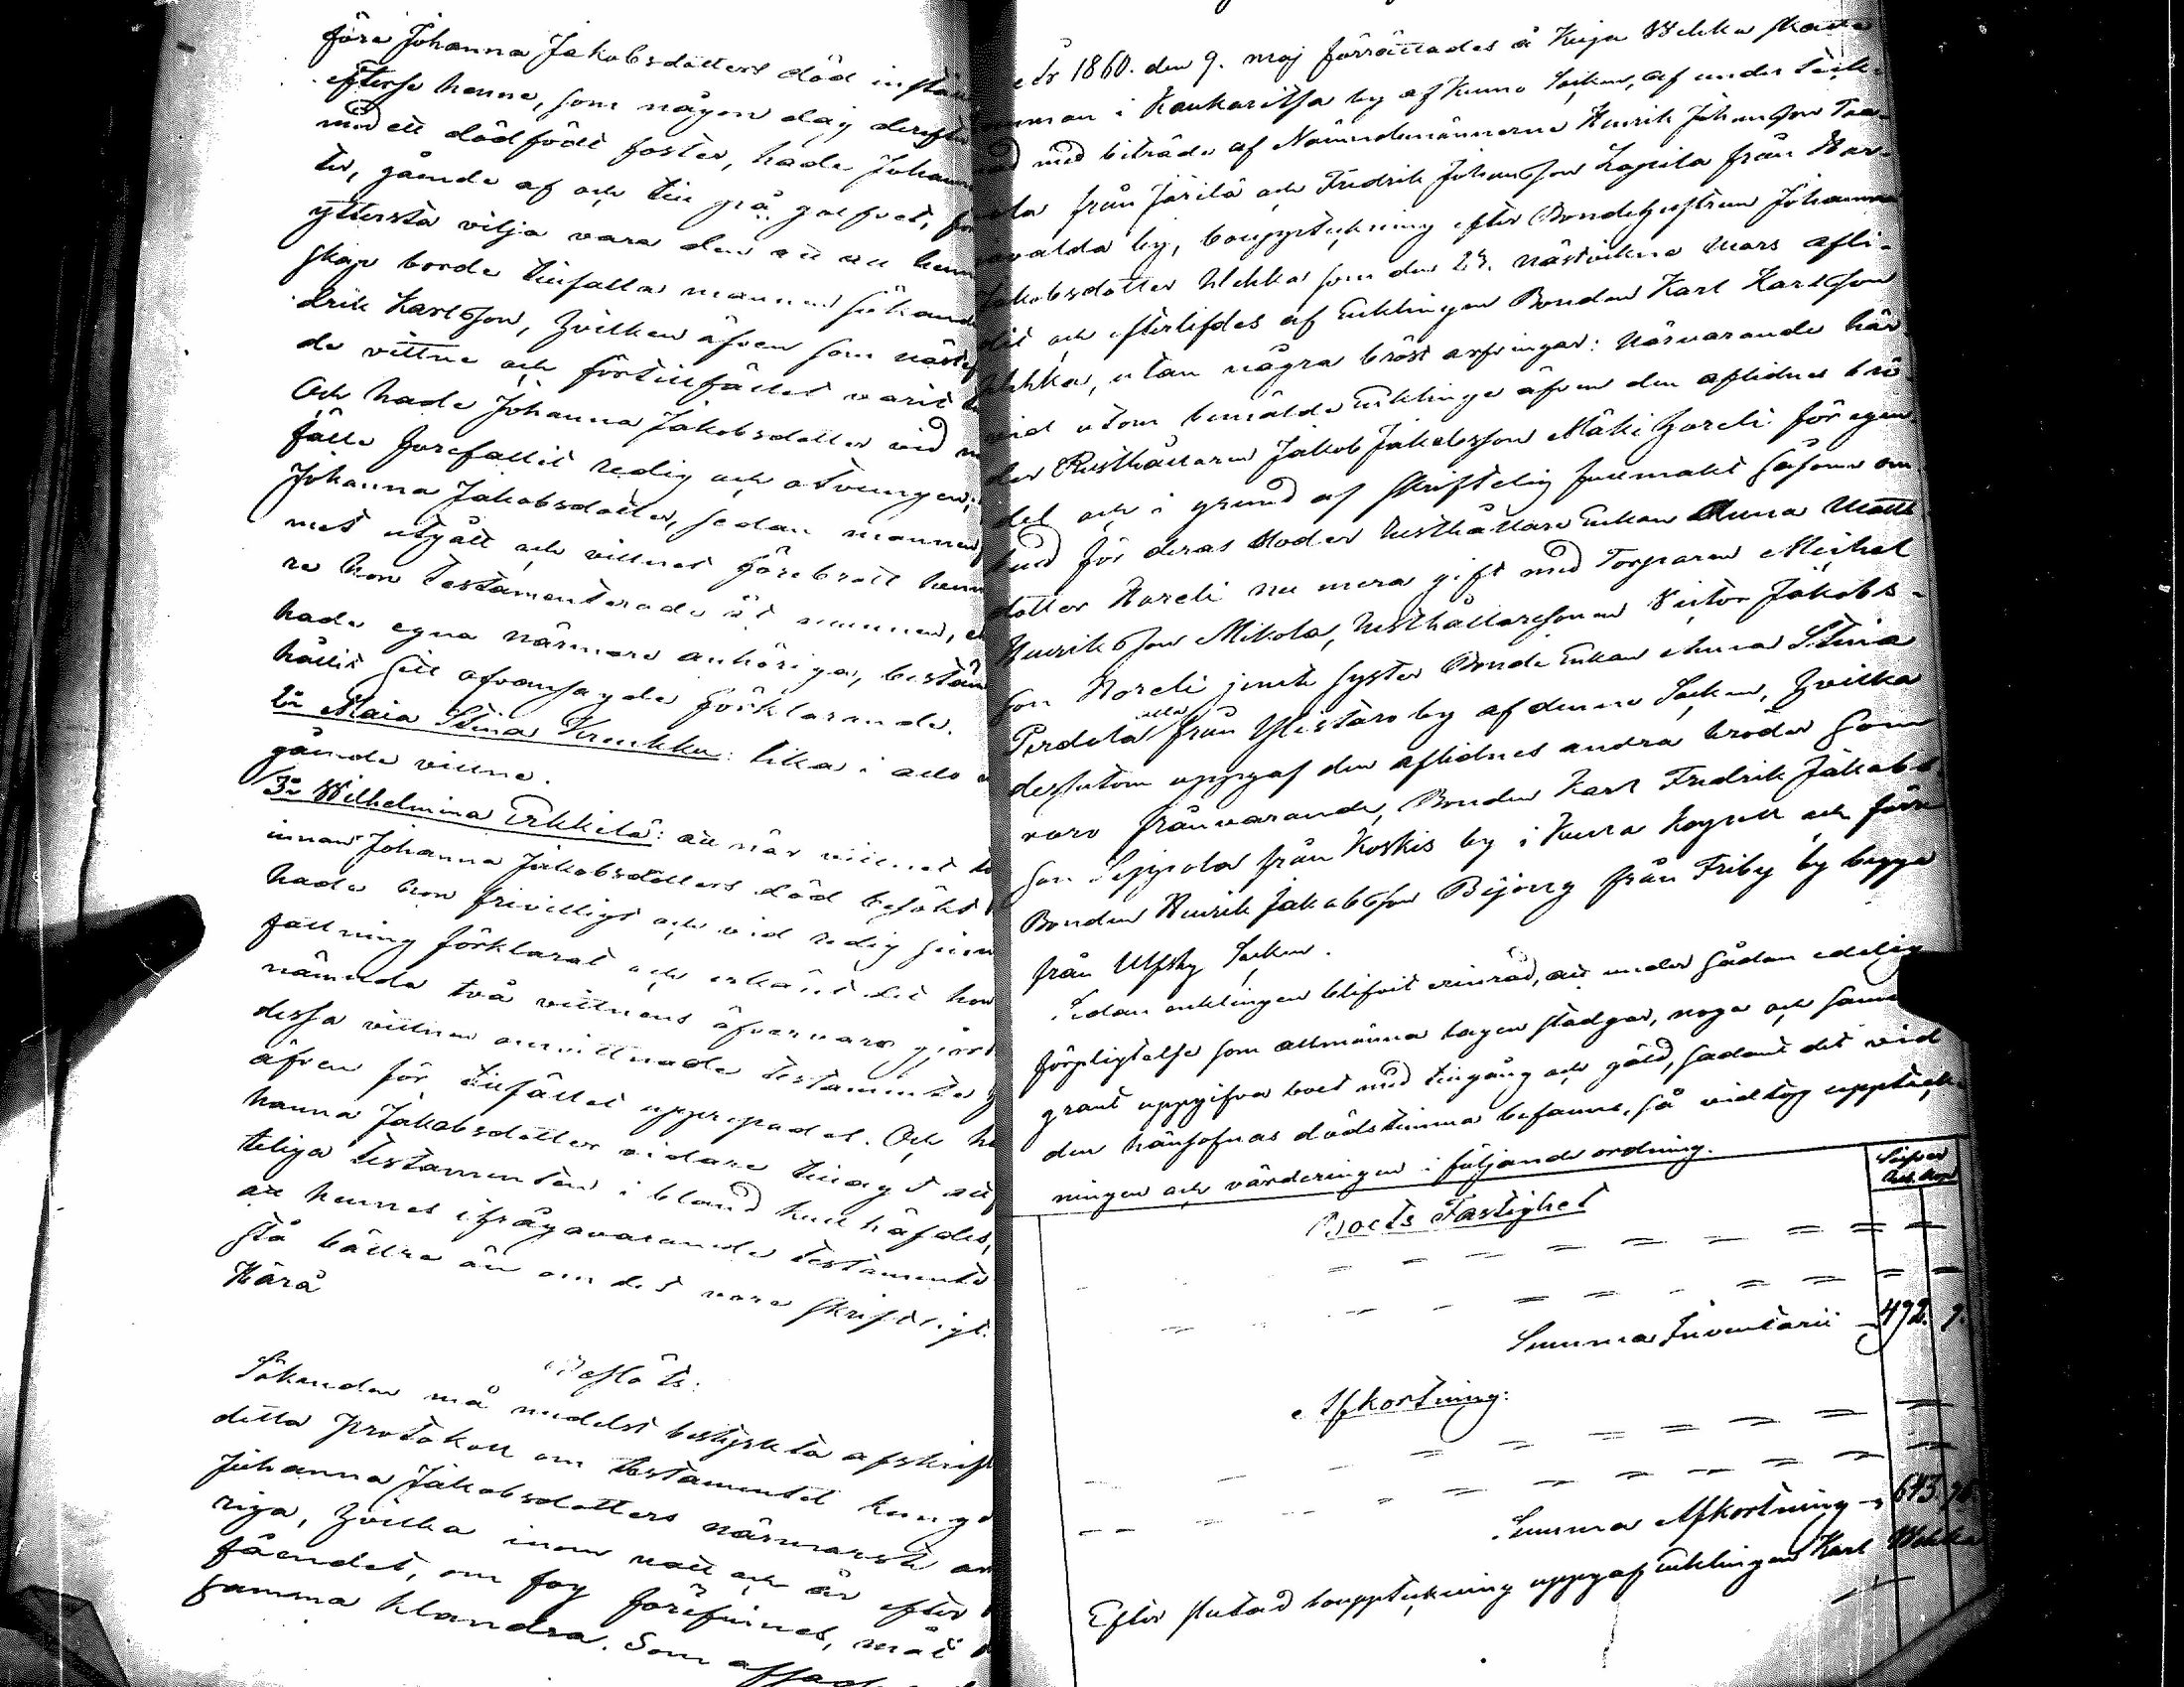 före Johanna Jakobsdotters död instäm
efterse henne, som någon dag derefter
med ett dödfödt foster, hade Johann
ter, gående af och till på golfvet, för
yttersta vilja vara den att all henn
skap borde tillfalla mannen sökand
drik Karlsson, hvilken äfven som näst
de vittne och förtillfället varit
Och hade Johanna Jakobsdotter vid
fälle förefallit redig och otvungen;
Johanna Jakobsdotter, sedan mannen
met utgått och vittnet förebrått henn
re hon testamenterade åt mannen, e
hade egna närmare anhöriga, bestäm
hållit sitt ofvansagde förklarande.
2o Maia Stina Krukka: lika i allo
gående vittne.
3o Wilhelmina Erkkilä: att när vittnet
innan Johanna Jakobsdotters död besökt
hade hon frivilligt och vid redig sinn
fattning förklarat och erkänt det hon
nämnda två vittnens öfvervaro gjort
dessa vittnen omvittnade testamente
äfven för tillfället upprepades. Och
hanna Jakobsdotter vidare tillagt att
teliga testamenten i bland kullkäfdes,
att hennes ifrågavarande testamente
stå bättre än om det vore skriftligt.
Härå
Reslots:
Sökanden må medelst bestyrkta afskrift
detta protokoll om testamentet kungö
Johanna Jakobsdotters närmaste an
riga, hvilka inom natt och år efter
fåendet, om fog förefinnes, måt
samma klandra. Som afsad
År 1860. den 9. maj förrättades å Keija Uhkka skatte
hemman i Kaukaritsa by af Kumo Socken, af under teck-
nad med biträde af Nämndemännerne Henrik Johansson Taa-
vela från Järilä och Fredrik Johansson Lapila från Har-
javalda by, bouppteckning efter Bondehustrun Johanna
Jakobsdotter Uhkka som den 27. nästvikne Mars afli-
dit och efterlifdes af Enklingen Bonden Karl Karlsson
Uhkka, utan några bröst arfvingar: Närvarande här
vid utom bemälde Enklinge äfven den aflidnes bro-
der Rusthållaren Jakob Jakobsson Mäki Horeli för egen
del och i grund af skriftelig fullmakt såsom om-
bud för deras Moder Rusthållare Enkan Anna Matts-
dotter Horeli nu mera gift med Torparen Michel
Henriksson Mikola, Rusthållaresonen Victor Jakobs-
son Horeli jemte syster Bonde Enkan Anna Stina
Perdola alla från Ylistaro by af denne Socken, hvilka
dessutom uppgaf den aflidnes andra bröder som
voro frånvarande, Bonden Karl Fredrik Jakobs-
son Seppola från Koskis by i Kulla Kapell och förre
Bonden Henrik Jakobsson Björry från Friby by begge
från Ulfsby Socken.
Sedan enklingen blifvit erinrad, att under sådan edelig
förpligtelse som allmänna lagen stadgar, noga och sann
grant uppgifva boet med tillgång och gäld, sadant det vid
den hänsofnas dödstimma befanns, så vidtog uppteck-
ningen och värderingen i följande ordning.
Silfver
Rub. Kop
Boets Fastighet
Summa Inventarii 492. 9.
Afkortning:
Summa Afkortning 643. 76
Efter slutad bouppteckning uppgaf Enklingen Karl Uhkka